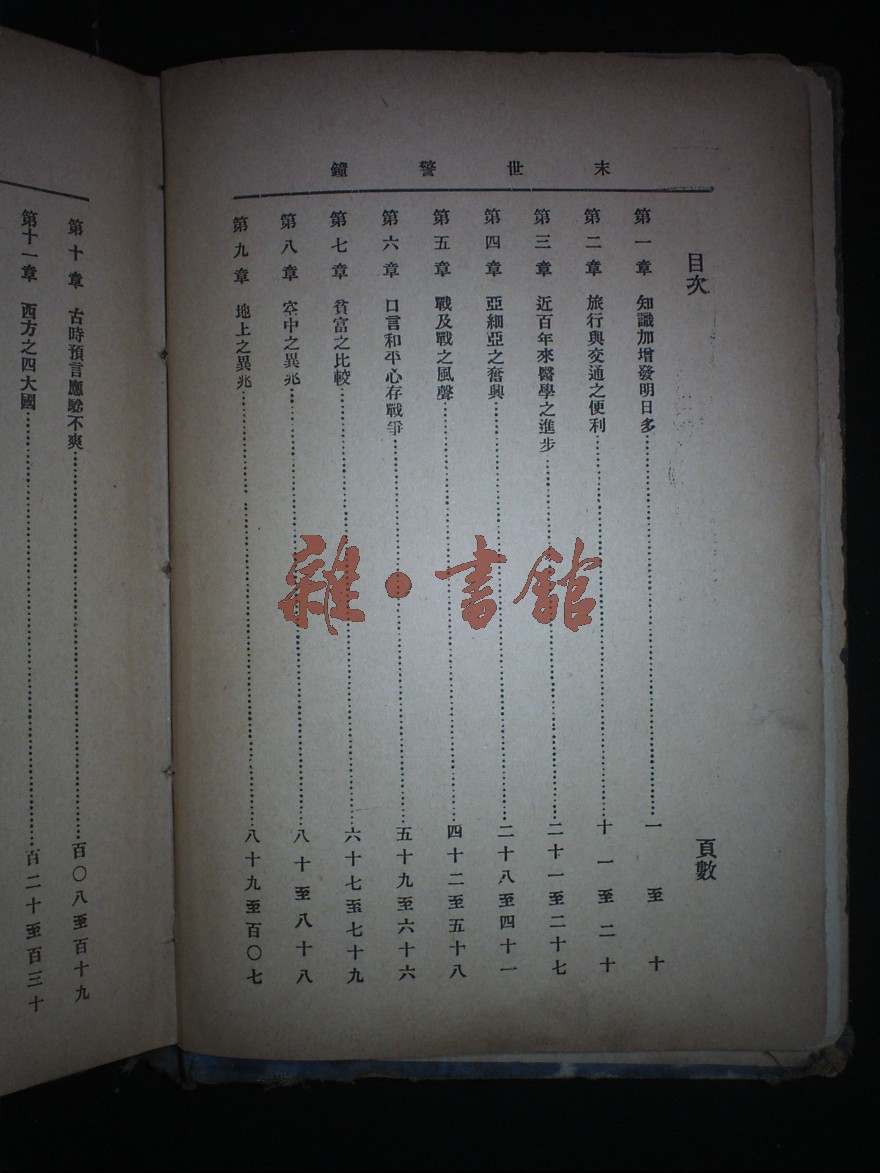 末世警鐘
目次 頁數
第一章 知識加增發明日多 一至十
第二章 旅行與交通之便利 十一至二十
第三章 近百年來醫學之進步 二十一至二十七
第四章 亞細亞之奮興 二十八至四十一
第五章 戰及戰之風聲 四十二至五十八
第六章 口言和平心存戰爭 五十九至六十六
第七章 貧富之比較 六十七至七十九
第八章 空中之異兆 八十至八十八
第九章 地上之異兆 八十九至百〇七
第十章 古時預言應驗不爽 百〇八至百十九
第十一章 西方之四大國 百二十至百三十
雜·書館